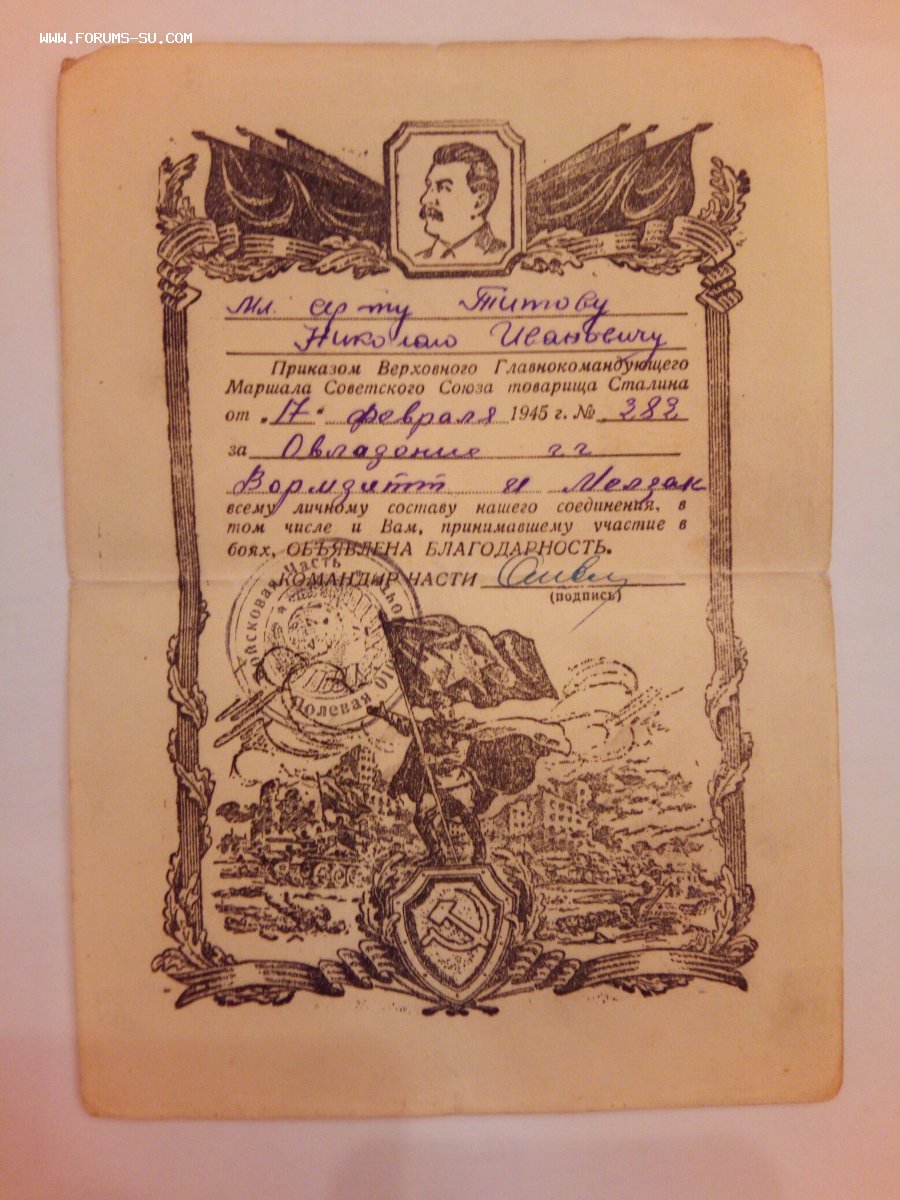 WWW.FORUMS-SU.COM
Мл. с-ту Титову
Николаю Ивановичу
Приказом Верховного Главнокомандующего
Маршала Советского Союза товарища Сталина
от „17“ февраля 1945 г. № 282
за Овладение г.г.
Вормдитт и Мелзак
всему личному составу нашего соединения, в
том числе и Вам, принимавшему участие в
боях, ОБЪЯВЛЕНА БЛАГОДАРНОСТЬ.
КОМАНДИР ЧАСТИ
(подпись)
Войсковая часть
Полевая